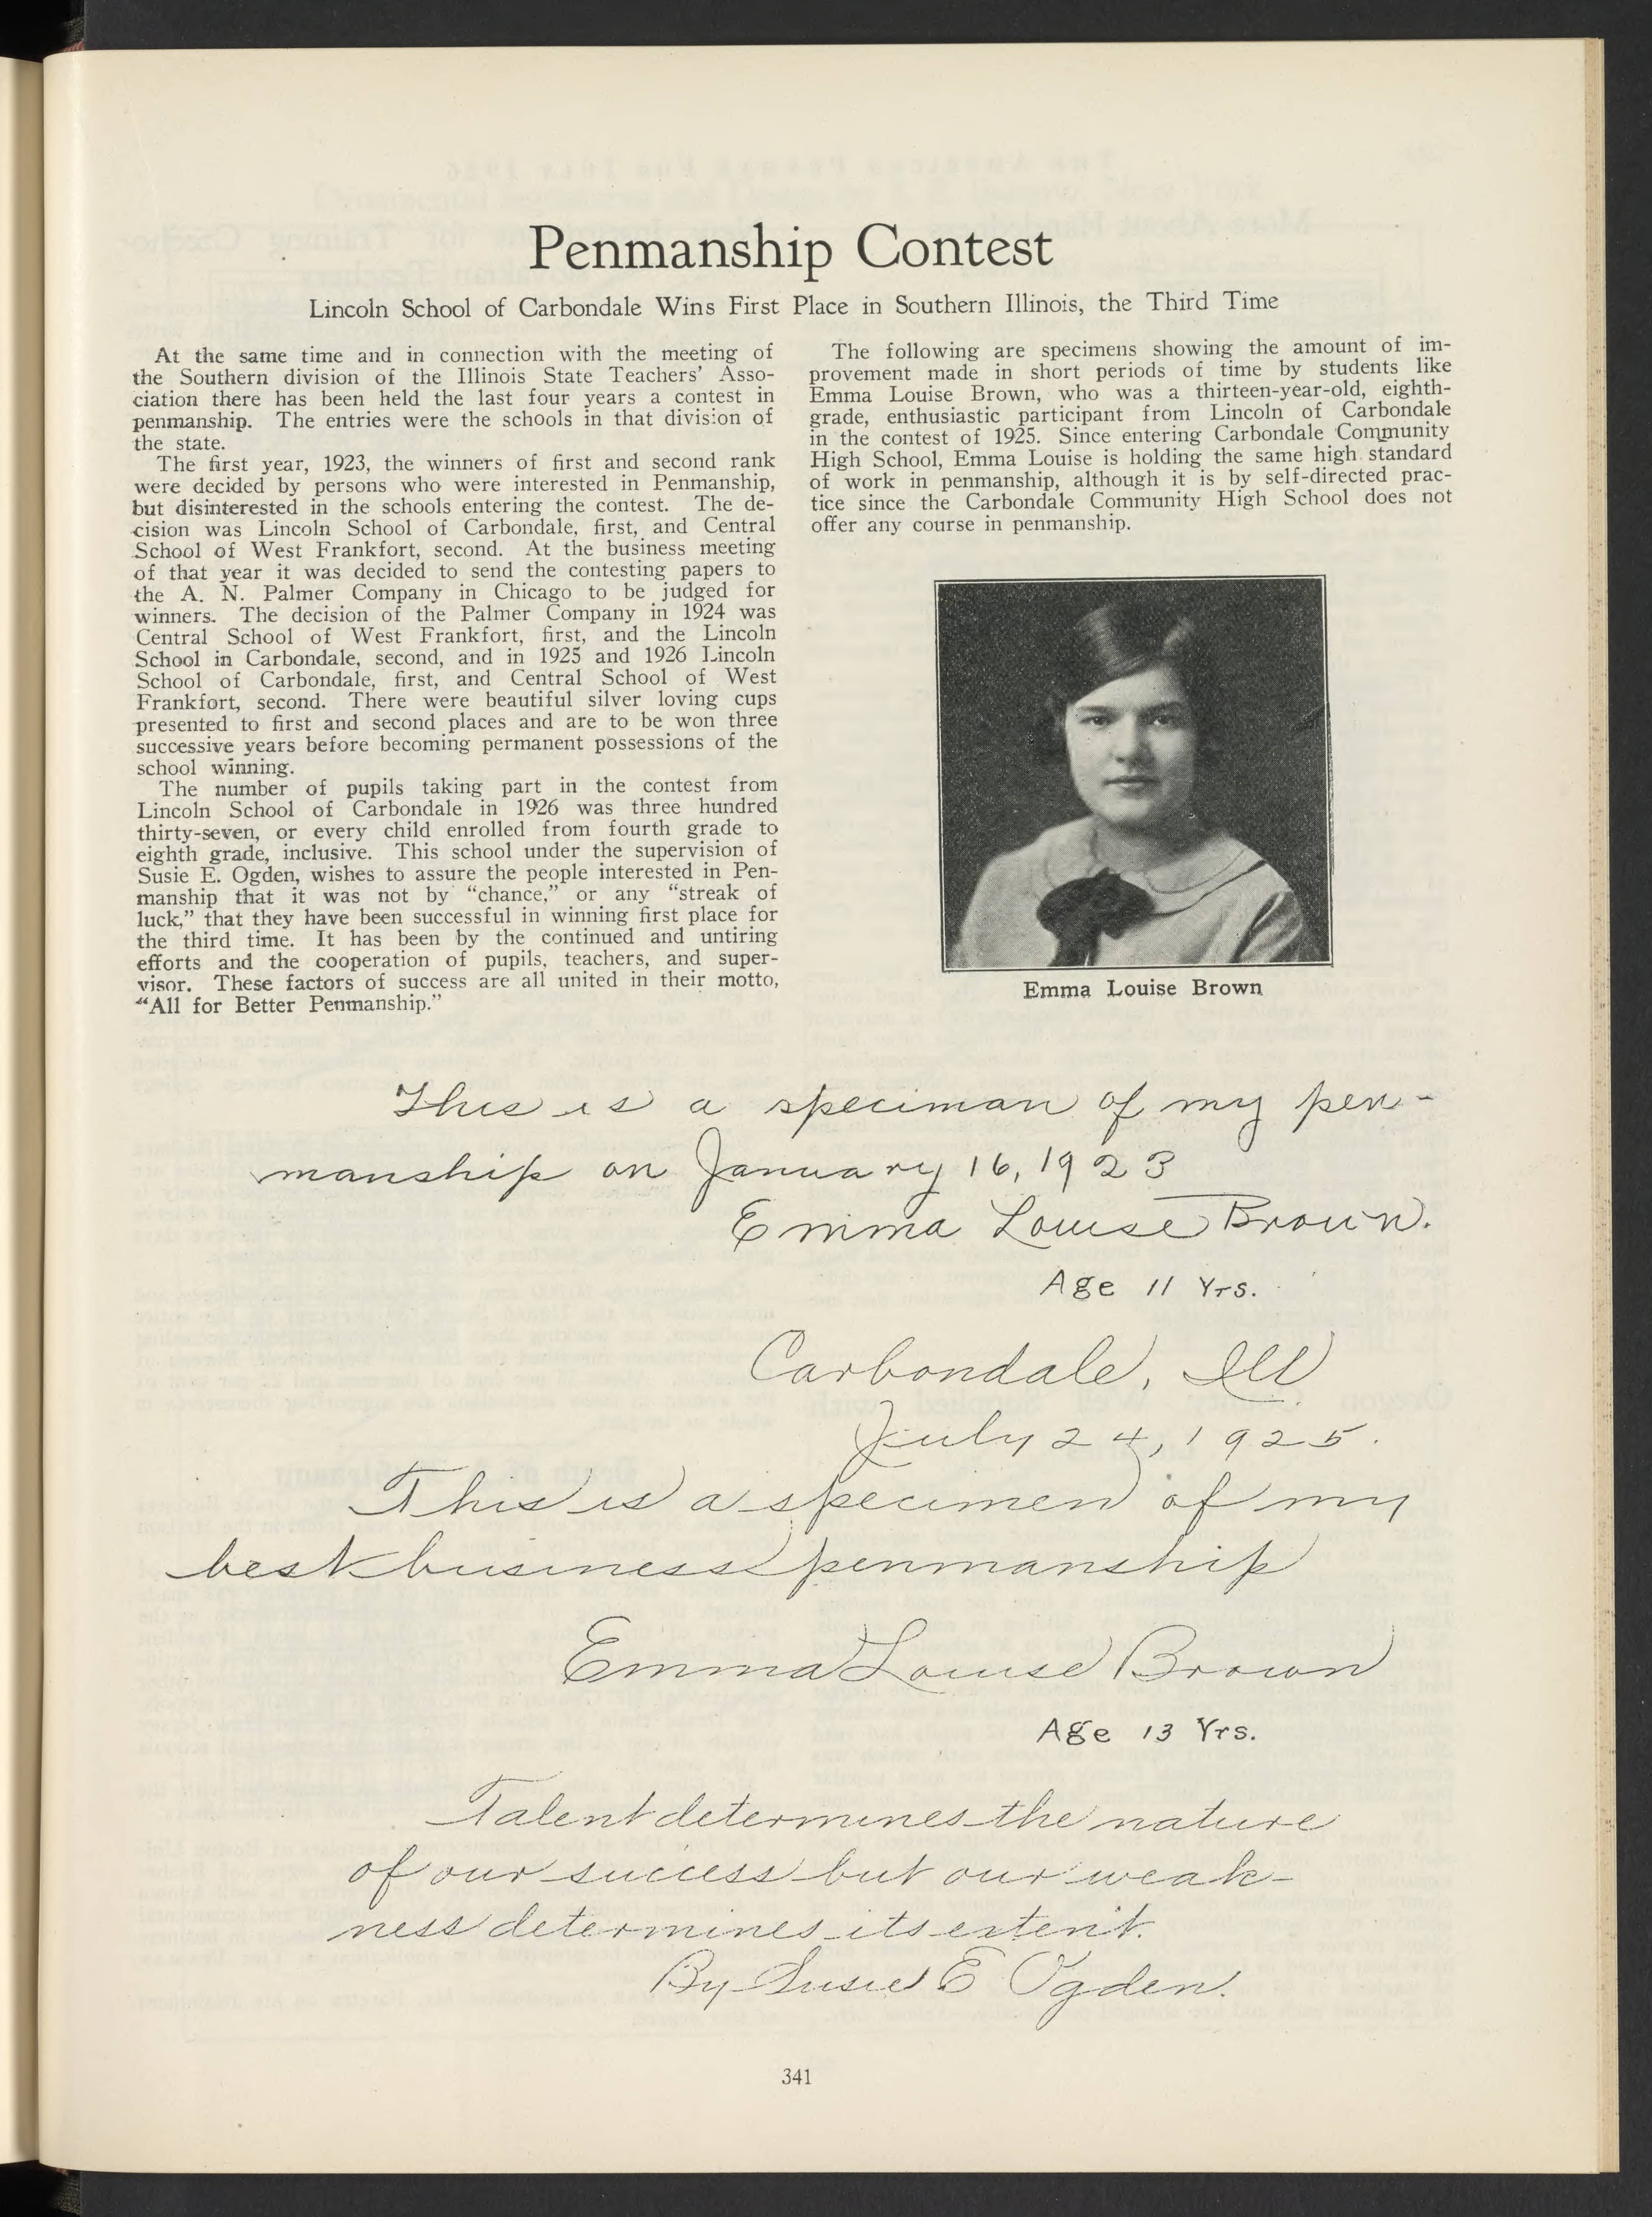 Penmanship Contest
Lincoln School of Carbondale Wins First Place in Southern Illinois, the Third Time
At the same time and in connection with the meeting of
the Southern division of the Illinois State Teachers' Asso-
ciation there has been held the last four years a contest in
penmanship. The entries were the schools in that division of
the state.
The first year, 1923, the winners of first and second rank
were decided by persons who were interested in Penmanship,
but disinterested in the schools entering the contest. The de-
cision was Lincoln School of Carbondale, first, and Central
School of West Frankfort, second. At the business meeting
of that year it was decided to send the contesting papers to
the A. N. Palmer Company in Chicago to be judged for
winners. The decision of the Palmer Company in 1924 was
Central School of West Frankfort, first, and the Lincoln
School in Carbondale, second, and in 1925 and 1926 Lincoln
School of Carbondale, first, and Central School of West
Frankfort, second. There were beautiful silver loving cups
presented to first and second places and are to be won three
successive years before becoming permanent possessions of the
school winning.
The number of pupils taking part in the contest from
Lincoln School of Carbondale in 1926 was three hundred
thirty-seven, or every child enrolled from fourth grade to
eighth grade, inclusive. This school under the supervision of
Susie E. Ogden, wishes to assure the people interested in Pen-
manship that it was not by "chance," or any "streak of
luck," that they have been successful in winning first place for
the third time. It has been by the continued and untiring
efforts and the cooperation of pupils, teachers, and super-
visor. These factors of success are all united in their motto,
"All for Better Penmanship."
The following are specimens showing the amount of im-
provement made in short periods of time by students like
Emma Louise Brown, who was a thirteen-year-old, eighth-
grade, enthusiastic participant from Lincoln of Carbondale
in the contest of 1925. Since entering Carbondale Community
High School, Emma Louise is holding the same high standard
of work in penmanship, although it is by self-directed prac-
tice since the Carbondale Community High School does not
offer any course in penmanship.
Emma Louise Brown
This is a speciman of my pen-
manship on January 16, 1923
Emma Louise Brown.
Age 11 Yrs.
Carbondale, Ill
July 24, 1925.
This is a specimen of my
best business penmanship
Emma Louise Brown
Age 13 Yrs.
Talent determines the nature
of our success but our weak-
ness determines its extent.
By Susie E Ogden.
341